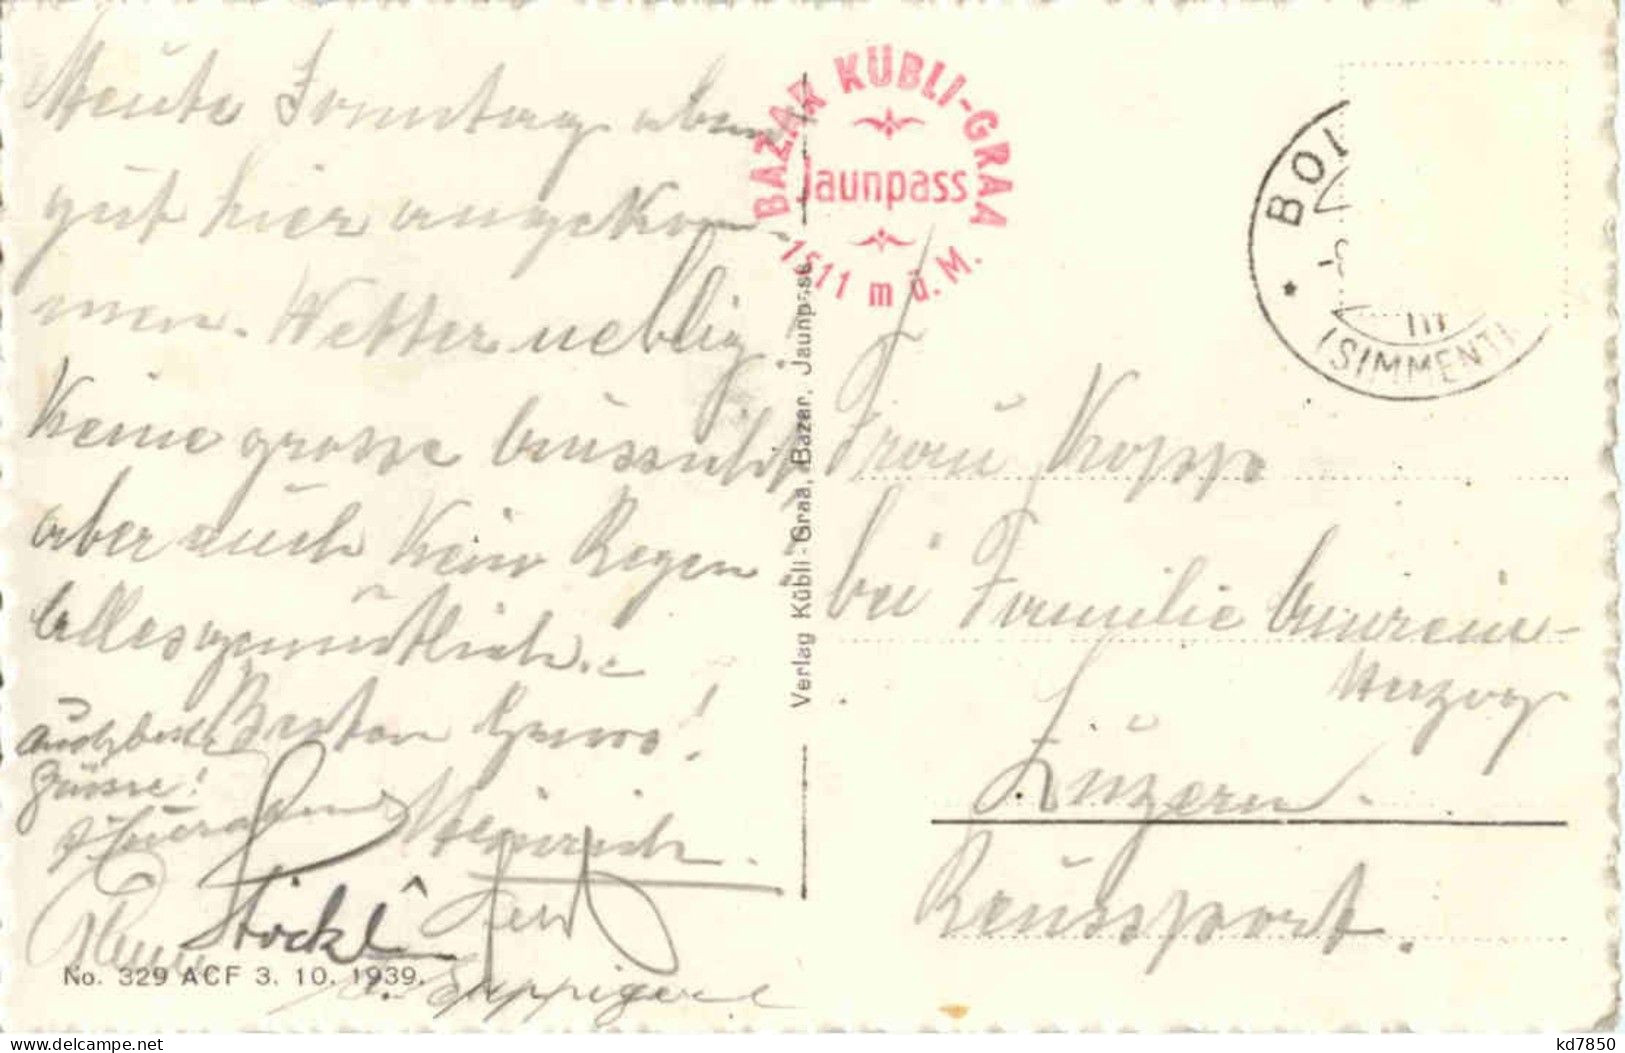 Heute Sonntag abend
gut hier angekom-
men. Wetter neblig
Keine grosse Aussicht
aber auch kein Regen
Alles gemütlich.
Besten Gruss!
Auch beste
Grüsse!
Heinrich.
Stöckl
BAZAR KÜBLI-GRAA
Jaunpass
1511 m ü. M.
BOL
(SIMMENTH
Verlag Kübli-Graa, Bazar, Jaunpass
Frau Kopp
bei Familie Amrein-
Herzog
Luzern.
Reussport.
No. 329 ACF 3. 10. 1939.
delcampe.net
kd7850